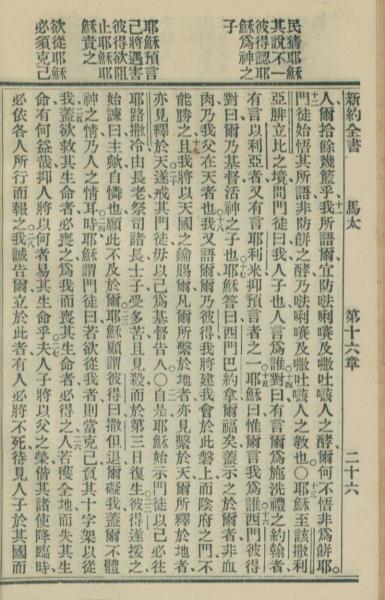 民猜耶穌
其說不一
彼得認耶
穌為神之
子
耶穌預言
己將遇害
彼得欲阻
止耶穌耶
穌責之
欲從耶穌
必須克己
新約全書 馬太 第十六章 二十六
人爾拾餘幾籃乎我所語爾宜防唎及吐人之酵爾何不悟非為餅耶
門徒始悟其所語非防餅之酵乃唎及吐人之教也〇耶穌至該撒利
亞腓立比之境問門徒曰我人子也人言為誰對曰有言爾為施洗禮之約翰者
有言以利亞者又有言耶利米抑預言者之一耶穌曰惟爾言我為誰西門彼得
對曰爾乃基督活神之子也耶穌答曰西門巴約拿爾福矣蓋示之於爾者非血
肉乃我父在天者也我又語爾爾乃彼得我將建我會於此磐上而陰府之門不
能勝之且我將以天國之鑰賜爾凡爾所繫於地者亦見繫於天爾所釋於地者
亦見釋於天遂戒其門徒毋以己為基督告人〇自是耶穌始示門徒以己必往
耶路撒冷由長老祭司諸長士子受多苦且見殺而於第三日復生彼得遂援之
始諫曰主歟自憐也願此不及於爾耶穌顧謂彼得曰撒但退爾礙我蓋爾不體
神之情乃人之情耳時耶穌謂門徒曰若欲從我者則當克己負其十字架以從
我蓋欲救其生命者必喪之為我而喪其生命者必得之人若獲全地而失其生
命有何益哉抑人將以何者易其生命乎夫人子將以父之榮偕其諸使降臨時
必依各人所行而報之我誠告爾立於此者有人必將不死待見人子於其國而